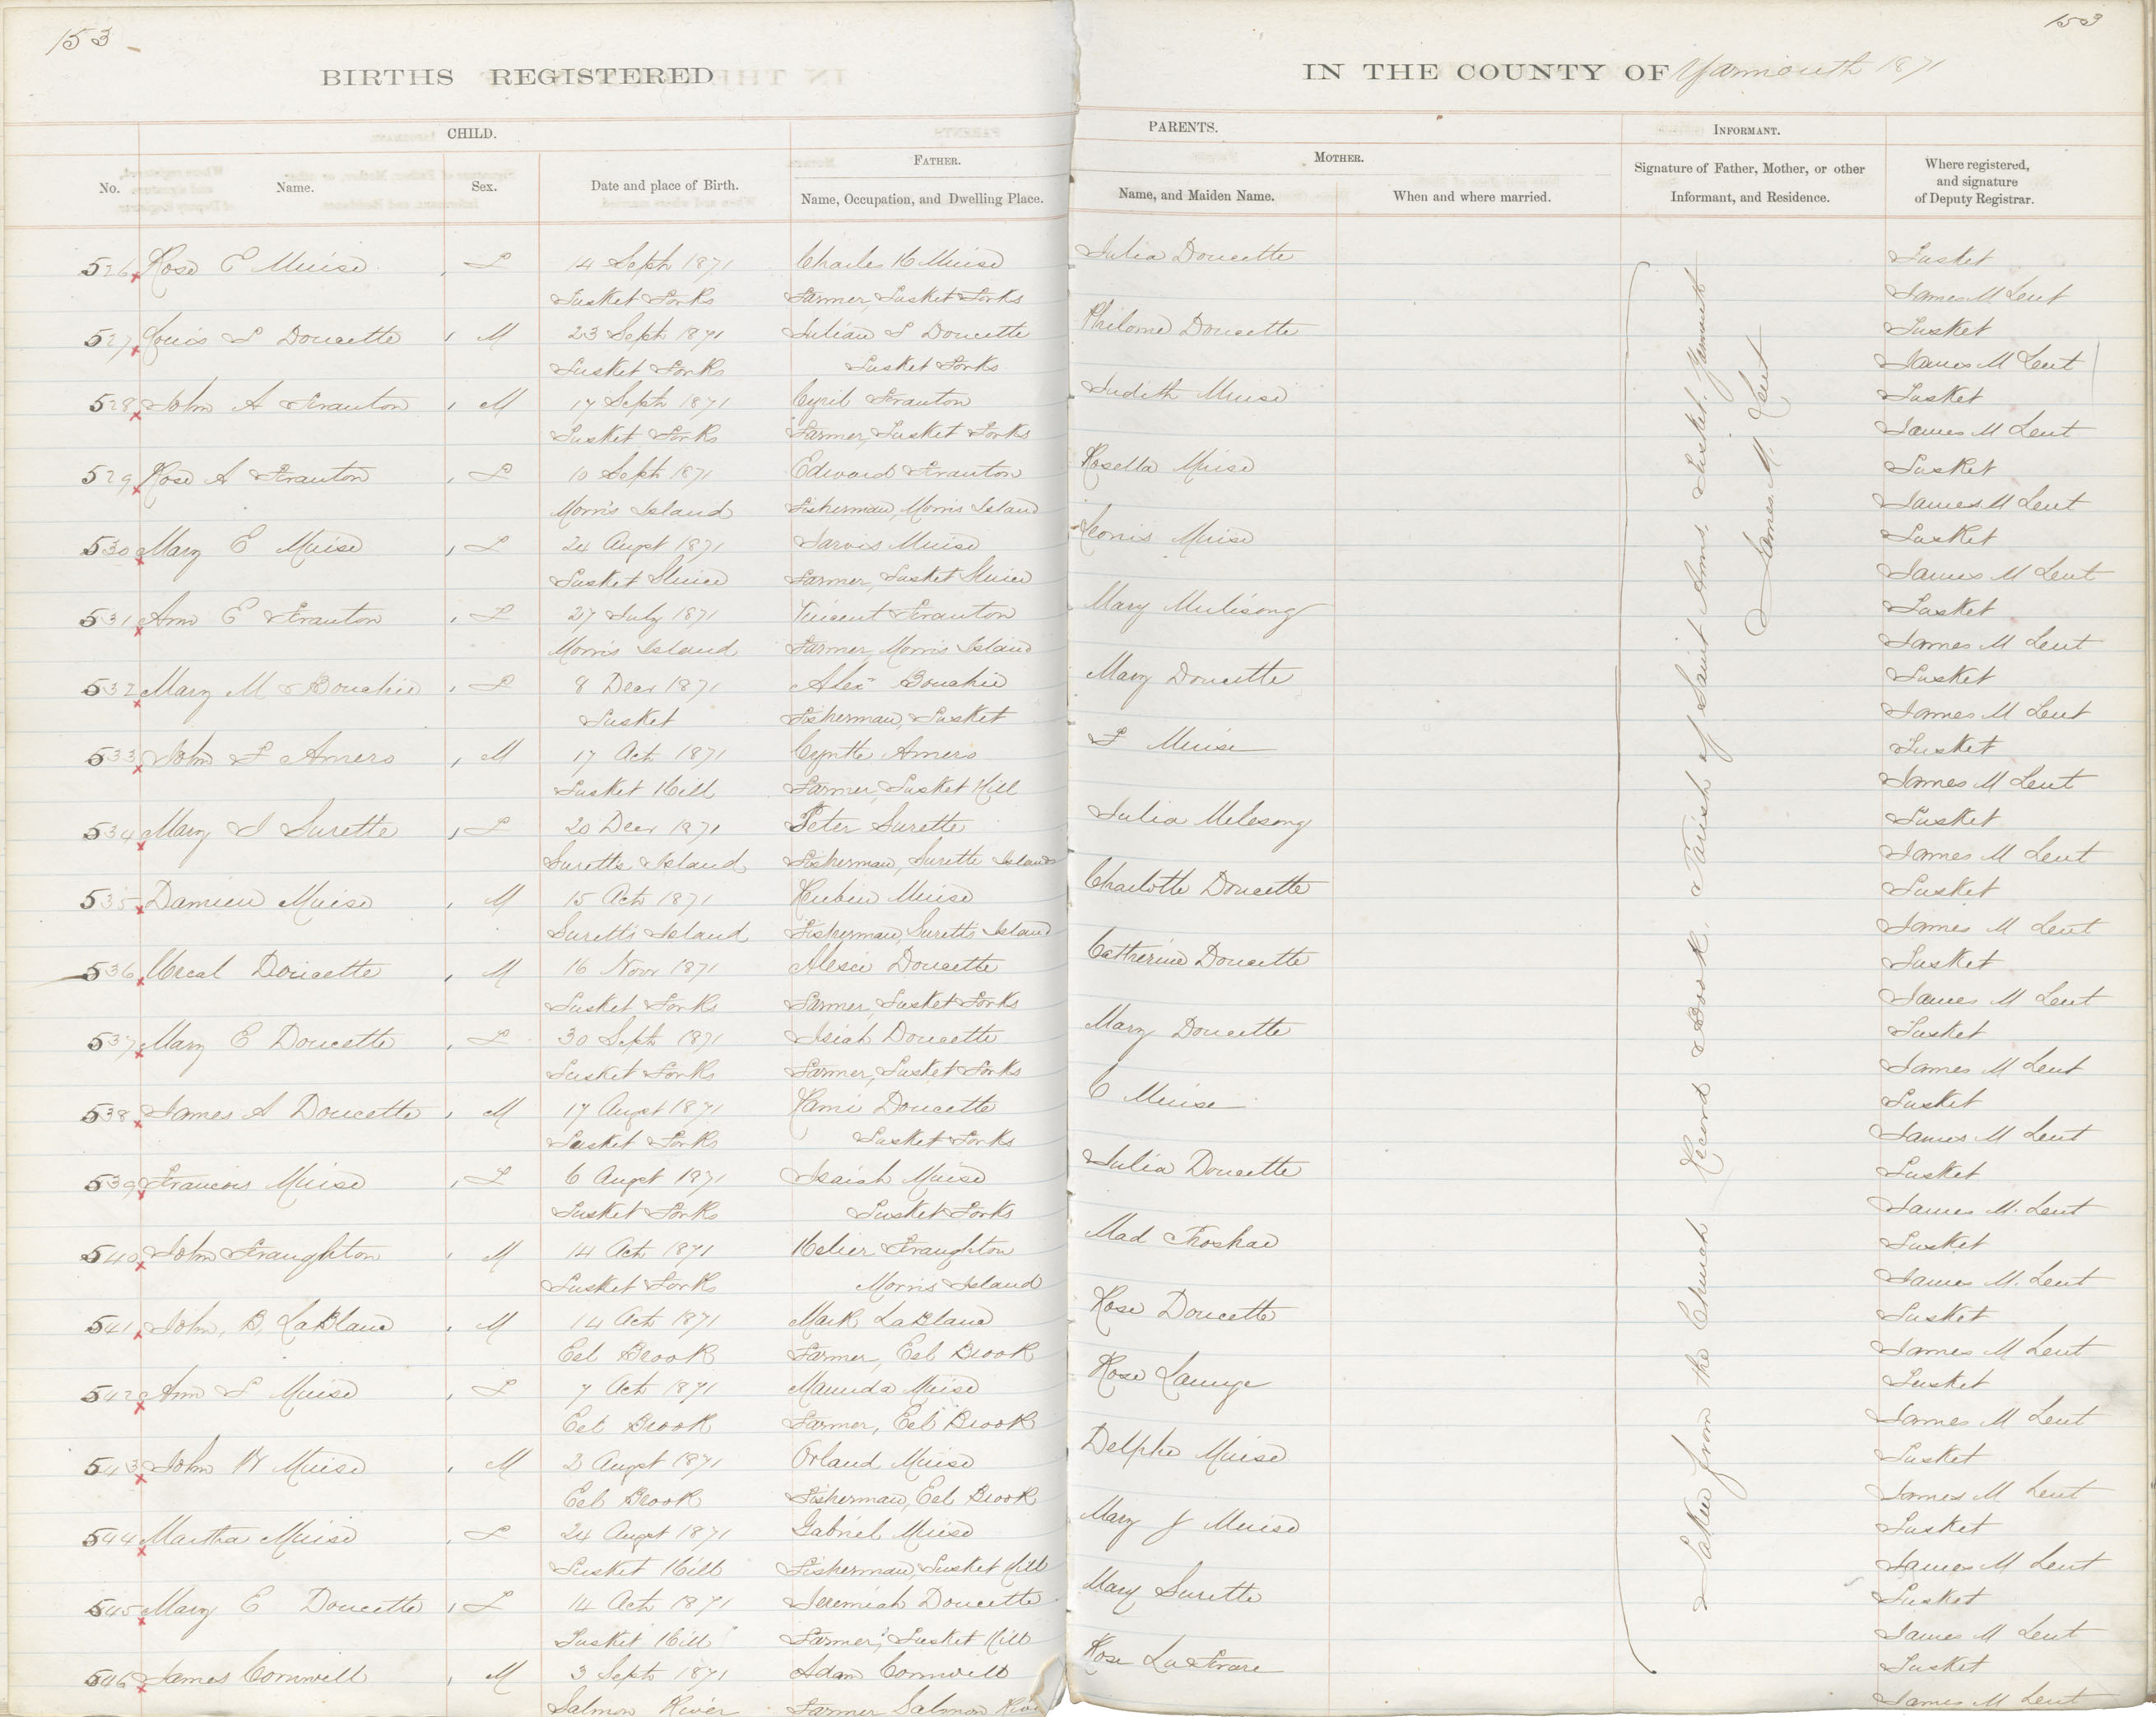 153
153
BIRTHS REGISTERED
IN THE COUNTY OF Yarmouth 1871
CHILD.
PARENTS.
INFORMANT.
FATHER.
MOTHER.
No.
Name.
Sex.
Date and place of Birth.
Name, Occupation, and Dwelling Place.
Name, and Maiden Name.
When and where married.
Signature of Father, Mother, or other
Informant, and Residence.
Where registered,
and signature
of Deputy Registrar.
526 Rose E Muise F 14 Sept 1871 Charles H Muise Julia Doucette Tusket
Tusket Forks Farmer, Tusket Forks James M Lent
527 Louis S Doucette M 23 Sept 1871 Julian S Doucette Philome Doucette Tusket
Tusket Forks Tusket Forks James M Lent
528 John A Frauton M 17 Sept 1871 Cyril Frauton Judith Muise Tusket
Tusket Forks Farmer, Tusket Forks James M Lent
529 Rose A Frauton F 10 Sept 1871 Edward Frauton Rosella Muise Tusket
Morris Island Fisherman, Morris Island James M Lent
530 Mary E Muise F 24 Augst 1871 Jarvis Muise Leonis Muise Tusket
Tusket Sluice Farmer, Tusket Sluice James M Lent
531 Ann E Frauton F 27 July 1871 Vincent Frauton Mary Mulisong Tusket
Morris Island Farmer, Morris Island James M Lent
532 Mary M Bouchie F 8 Decr 1871 Alexr Bouchie Mary Doucette Tusket
Tusket Fisherman, Tusket James M Lent
533 John F Amero M 17 Oct 1871 Amero F Muise Tusket
Tusket Hill Farmer, Tusket Hill James M Lent
534 Mary J Surette F 20 Decr 1871 Peter Surette Julia Melesong Tusket
Surette Island Fisherman, Surette Island James M Lent
535 Damien Muise M 15 Oct 1871 Rubin Muise Charlotte Doucette Tusket
Suretts Island Fisherman, Suretts Island James M Lent
536 Doucette M 16 Novr 1871 Doucette Catherine Doucette Tusket
Tusket Forks Farmer, Tusket Forks James M Lent
537 Mary E Doucette F 30 Sept 1871 Isiah Doucette Mary Doucette Tusket
Tusket Forks Farmer, Tusket Forks James M Lent
538 James A Doucette M 17 Augst 1871 Doucette C Muise Tusket
Tusket Forks Tusket Forks James M Lent
539 Francois Muise F 6 Augst 1871 Isaiah Muise Julia Doucette Tusket
Tusket Forks Tusket Forks James M. Lent
540 John Fraughton M 14 Oct 1871 Helier Fraughton Mad Tusket
Tusket Forks Morris Island James M. Lent
541 John, B, LaBlanc M 14 Oct 1871 Mark LaBlanc Rose Doucette Tusket
Eel Brook Farmer, Eel Brook James M Lent
542 Ann S Muise F 7 Oct 1871 Muise Rose Tusket
Eel Brook Farmer, Eel Brook James M Lent
543 John W Muise M 2 Augst 1871 Orland Muise Delphe Muise Tusket
Eel Brook Fisherman, Eel Brook James M Lent
544 Martha Muise F 24 Augst 1871 Gabriel Muise Mary J Muise Tusket
Tusket Hill Fisherman, Tusket Hill James M Lent
545 Mary E Doucette F 14 Oct 1871 Jeremiah Doucette Mary Surette Tusket
Tusket Hill Farmer, Tusket Hill James M Lent
546 James Cornwill M 3 Sept 1871 Adam Cornwill Rose Tusket
Salmon River Farmer Salmon River James M Lent
Taken from the Church Record Book, Parish of Saint Anns, Tusket, Yarmouth
James M. Lent